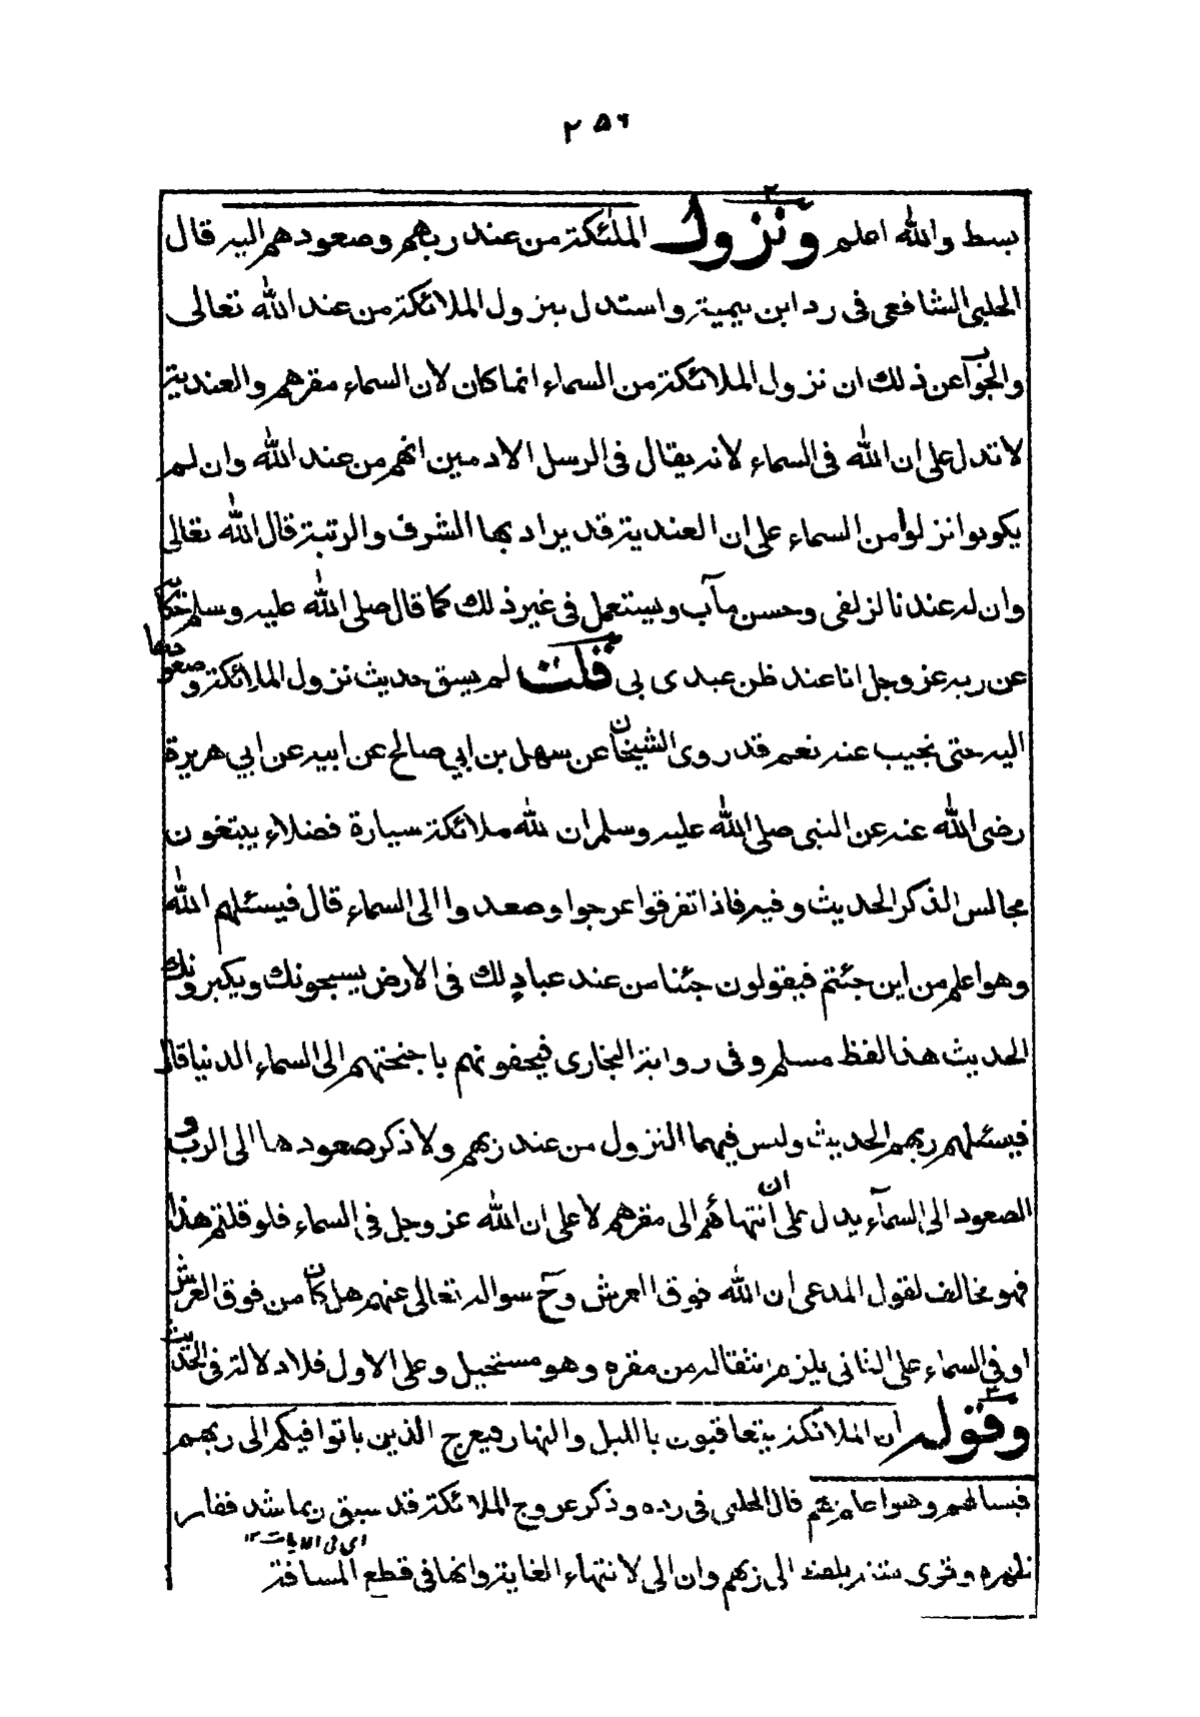 ٢٥٦
بسط والله اعلم ونزول الملئكة من عند ربهم وصعودهم اليه قال
الحلبى الشافعى فى رد ابن تيمية واستدل بنزول الملائكة من عند الله تعالى
والجواب عن ذلك ان نزول الملائكة من السماء انما كان لان السماء مقرهم والعندية
لا تدل على ان الله فى السماء لانه يقال فى الرسل الادميين انهم من عند الله وان لم
يكونوا نزلوا من السماء على ان العندية قد يراد بها الشرف والرتبة قال الله تعالى
وان له عندنا لزلفى وحسن مآب ويستعمل فى غير ذلك كما قال صلى الله عليه وسلم حكاية
عن ربه عز وجل انا عند ظن عبدى بى قلت لم يسق حديث نزول الملائكة وصعودها
اليه حتى نجيب عنه نعم قد روى الشيخان عن سهل بن ابي صالح عن ابيه عن ابي هريرة
رضى الله عنه عن النبى صلى الله عليه وسلم ان لله ملائكة سيارة فضلاء يبتغون
مجالس الذكر الحديث وفيه فاذا تفرقوا عرجوا وصعدوا الى السماء قال فيسئلهم الله
وهو اعلم من اين جئتم فيقولون جئنا من عند عباد لك فى الارض يسبحونك ويكبرونك
الحديث هذا لفظ مسلم وفى رواية البخارى فيحفونهم باجنحتهم الى السماء الدنيا قال
فيسئلهم ربهم الحديث وليس فيهما النزول من عند ربهم ولا ذكر صعودها الى الرب و
الصعود الى السمآء يدل على ان انتهائهم الى مقرهم لا على ان الله عز وجل فى السماء فلو قلتم هذا
فهو مخالف لقول المدعى ان الله فوق العرش وح سواله تعالى عنهم هل كان من فوق العرش
او فى السماء على الثانى يلزم انتقاله من مقره وهو مستحيل وعلى الاول فلا دلالة فى الحديث
وقوله ان الملائكة يتعاقبون بالليل والنهار فيعرج الذين باتوا فيكم الى ربهم
فيسالهم وهو اعلم بهم قال الحلبى فى رده وذكر عروج الملائكة قد سبق ربما شد فقار
اى فى الايات ١٢
ظهره وقوى منته بلفظ الى ربهم وان الى لانتهاء الغاية وانها فى قطع المسافة